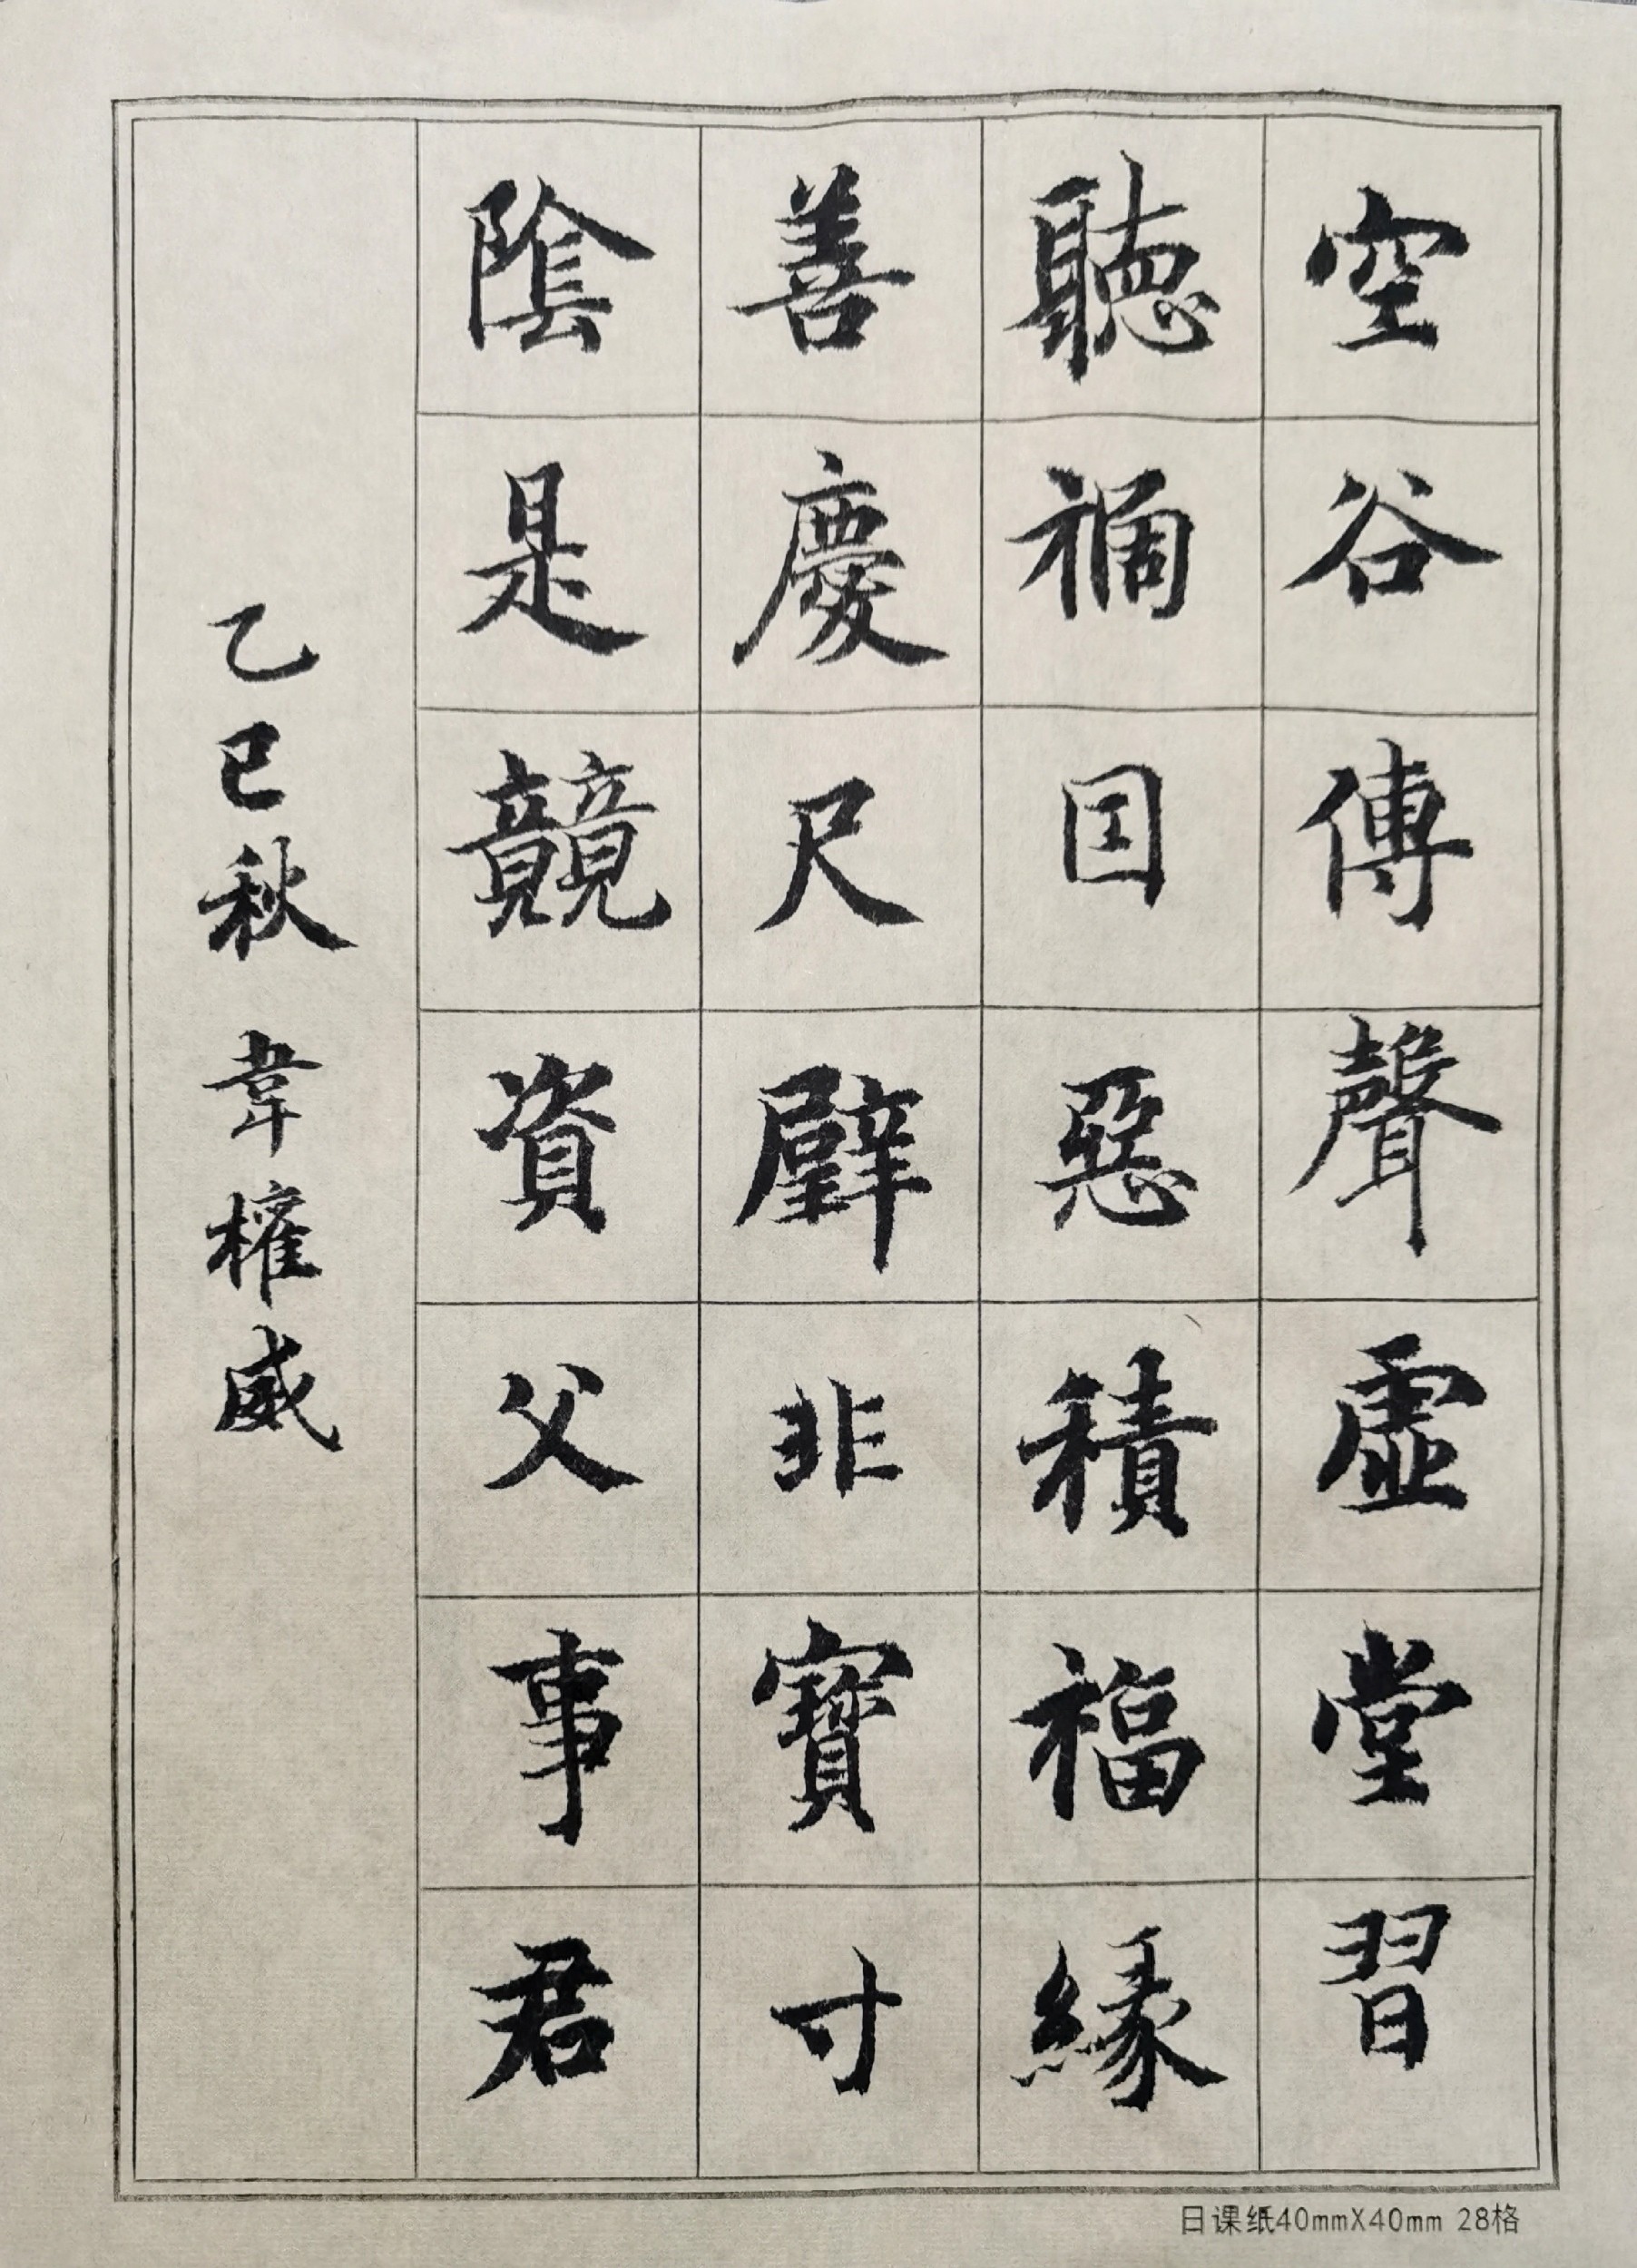 空谷傳聲虛堂習
聽禍因惡積福緣
善慶尺璧非寶寸
陰是競資父事君
乙巳秋 韋權威
日课纸40mmX40mm 28格